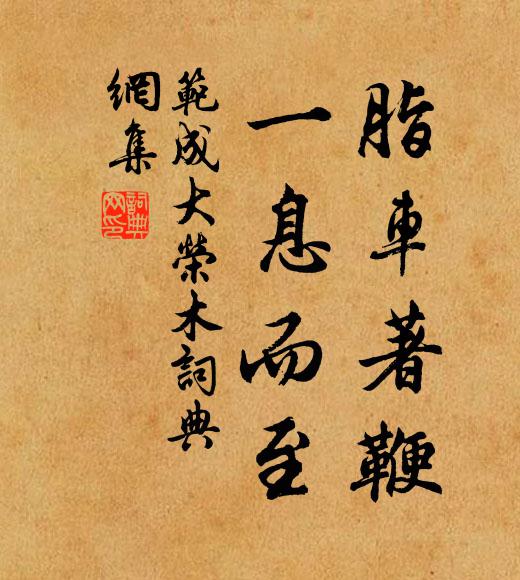 脂車著鞭
一息而至
範成大榮木詞典
網集
詞典
网印